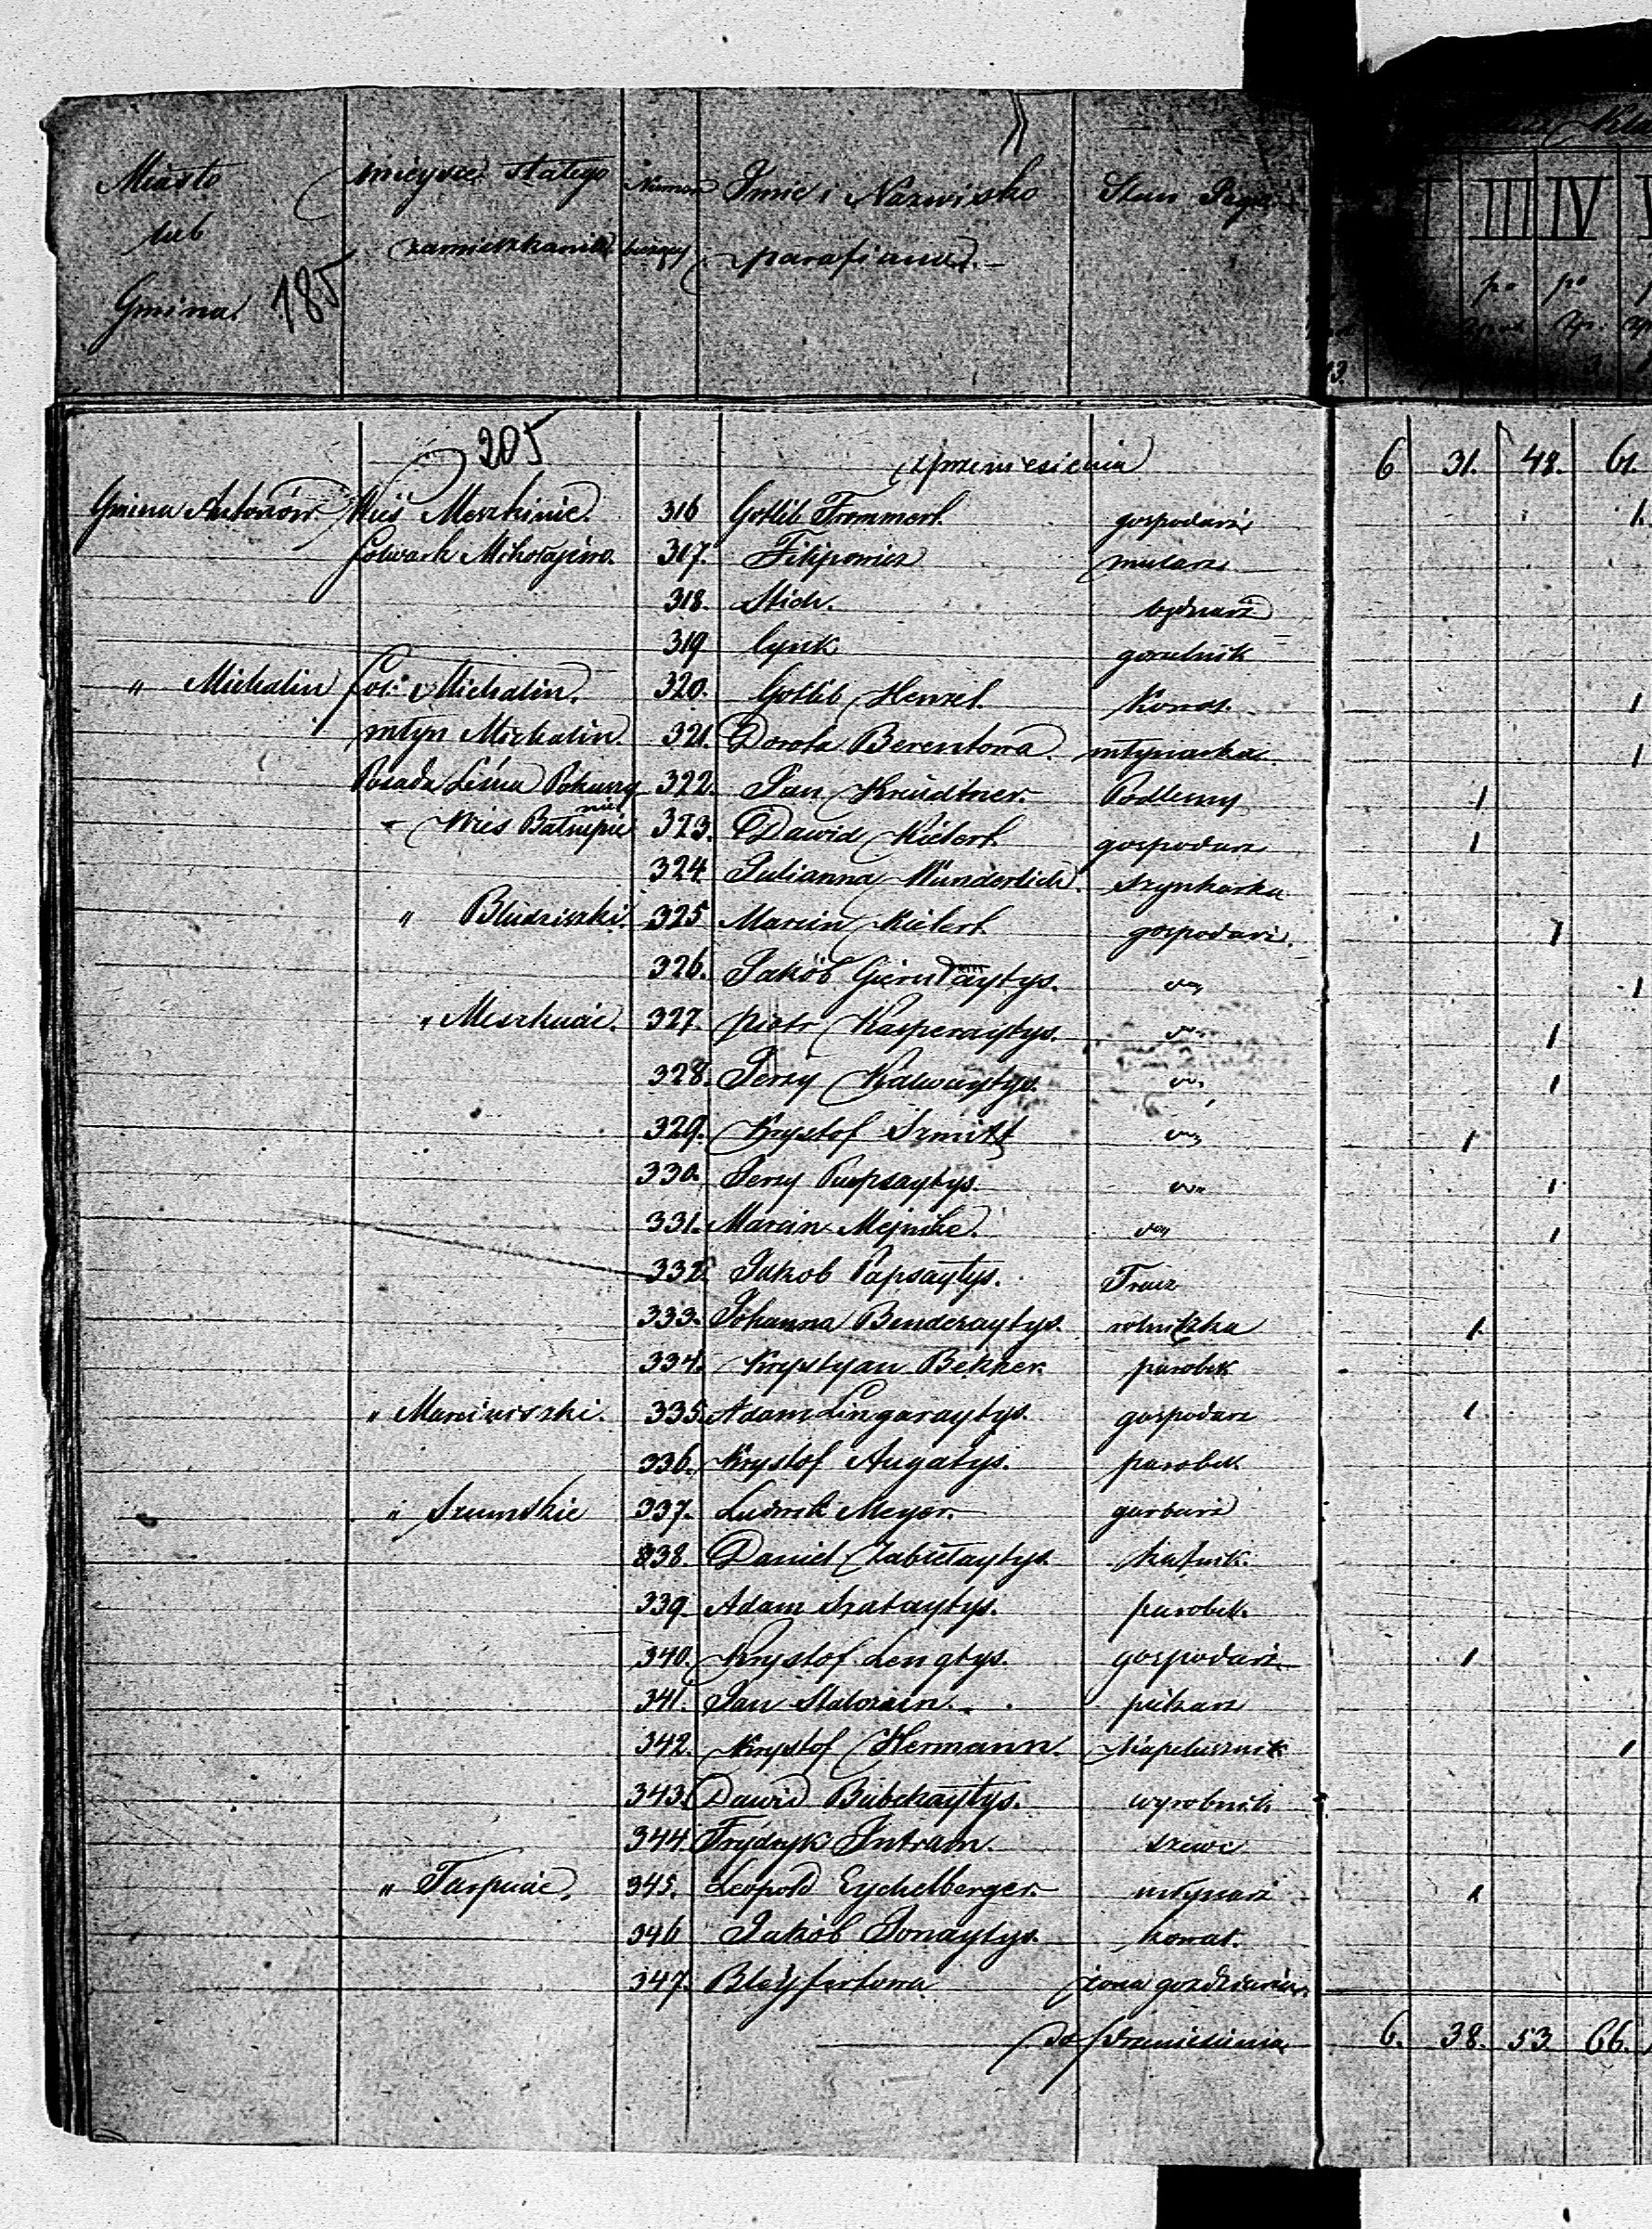 Miasto lub Gmina. 185 miejsce stałego zamieszkania Numer bieżący Imie i Nazwisko parafiana.
III IV
po po
205
z przeniesienia 6 31. 48. 61.
Gmina Antonów. Wieś Meszkinie. 316 Gotlib Frommert. gospodarz 1.
folwark Mikołajewo. 317. Filipowicz mularz
318. Stich. bednarz
319 Cynk gorzelnik
" Michalin fol: Michalin. 320. Gotlib Henzel. Kowal. 1
młyn Michalin. 321. Dorota Berentowa. młynarka. 1
Posada Leśna 322. Jan Kreudtner. Podleśny 1
Wieś 323. Dawid Kielert. gospodarz 1
324. Julianna Wunderlich. szynkarka
" Bludziszki. 325 Marcin Kielert. gospodarz. 1
326. Jakób 1
" Meszkucie. 327. Piotr Kasperaytys. 1
328. Jerzy Kalwaytys. 1
329. Krystof Szmitt 1
330. Jerzy Pupsaytys. 1
331. Marcin Mejnike. 1
332. Jakob Papsaytys. Tracz
333. Johanna Benderaytys. rolniczka 1.
334. Krystyan Bekker. parobek
" Marciniszki. 335. Adam Lingaraytys. gospodarz 1.
336. Krystof Augatys. parobek
" Szumskie 337. Ludwik Meyer. garbarz
338. Daniel Zabielaytys.
339. Adam Szataytys. parobek.
340. Krystof Lengtys. gospodarz 1
341. Jan piekarz
342. Krystof Hermann. Kapelusznik 1
343. Dawid Bubekaytys. wyrobnik
344. Frydryk Intram. szewc
" Tarpucie. 345. Leopold Eychelberger. młynarz 1
346 Jakób Jonaytys. kowal.
347. Bleyfertowa żona
do przeniesienia 6. 38. 53. 66.